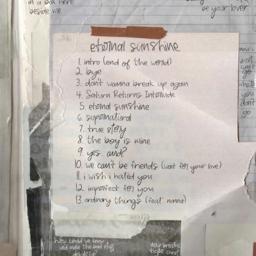 in a box here
beside me
be your lover
eternal sunshine
1. intro (end of the world)
2. bye
3. don't wanna break up again
4. Saturn Returns Interlude
5. eternal sunshine
6. supernatural
7. true story
8. the boy is mine
9. yes, and?
10. we can't be friends (wait for your love)
11. i wish i hated you
12. imperfect for you
13. ordinary things (feat. nonna)